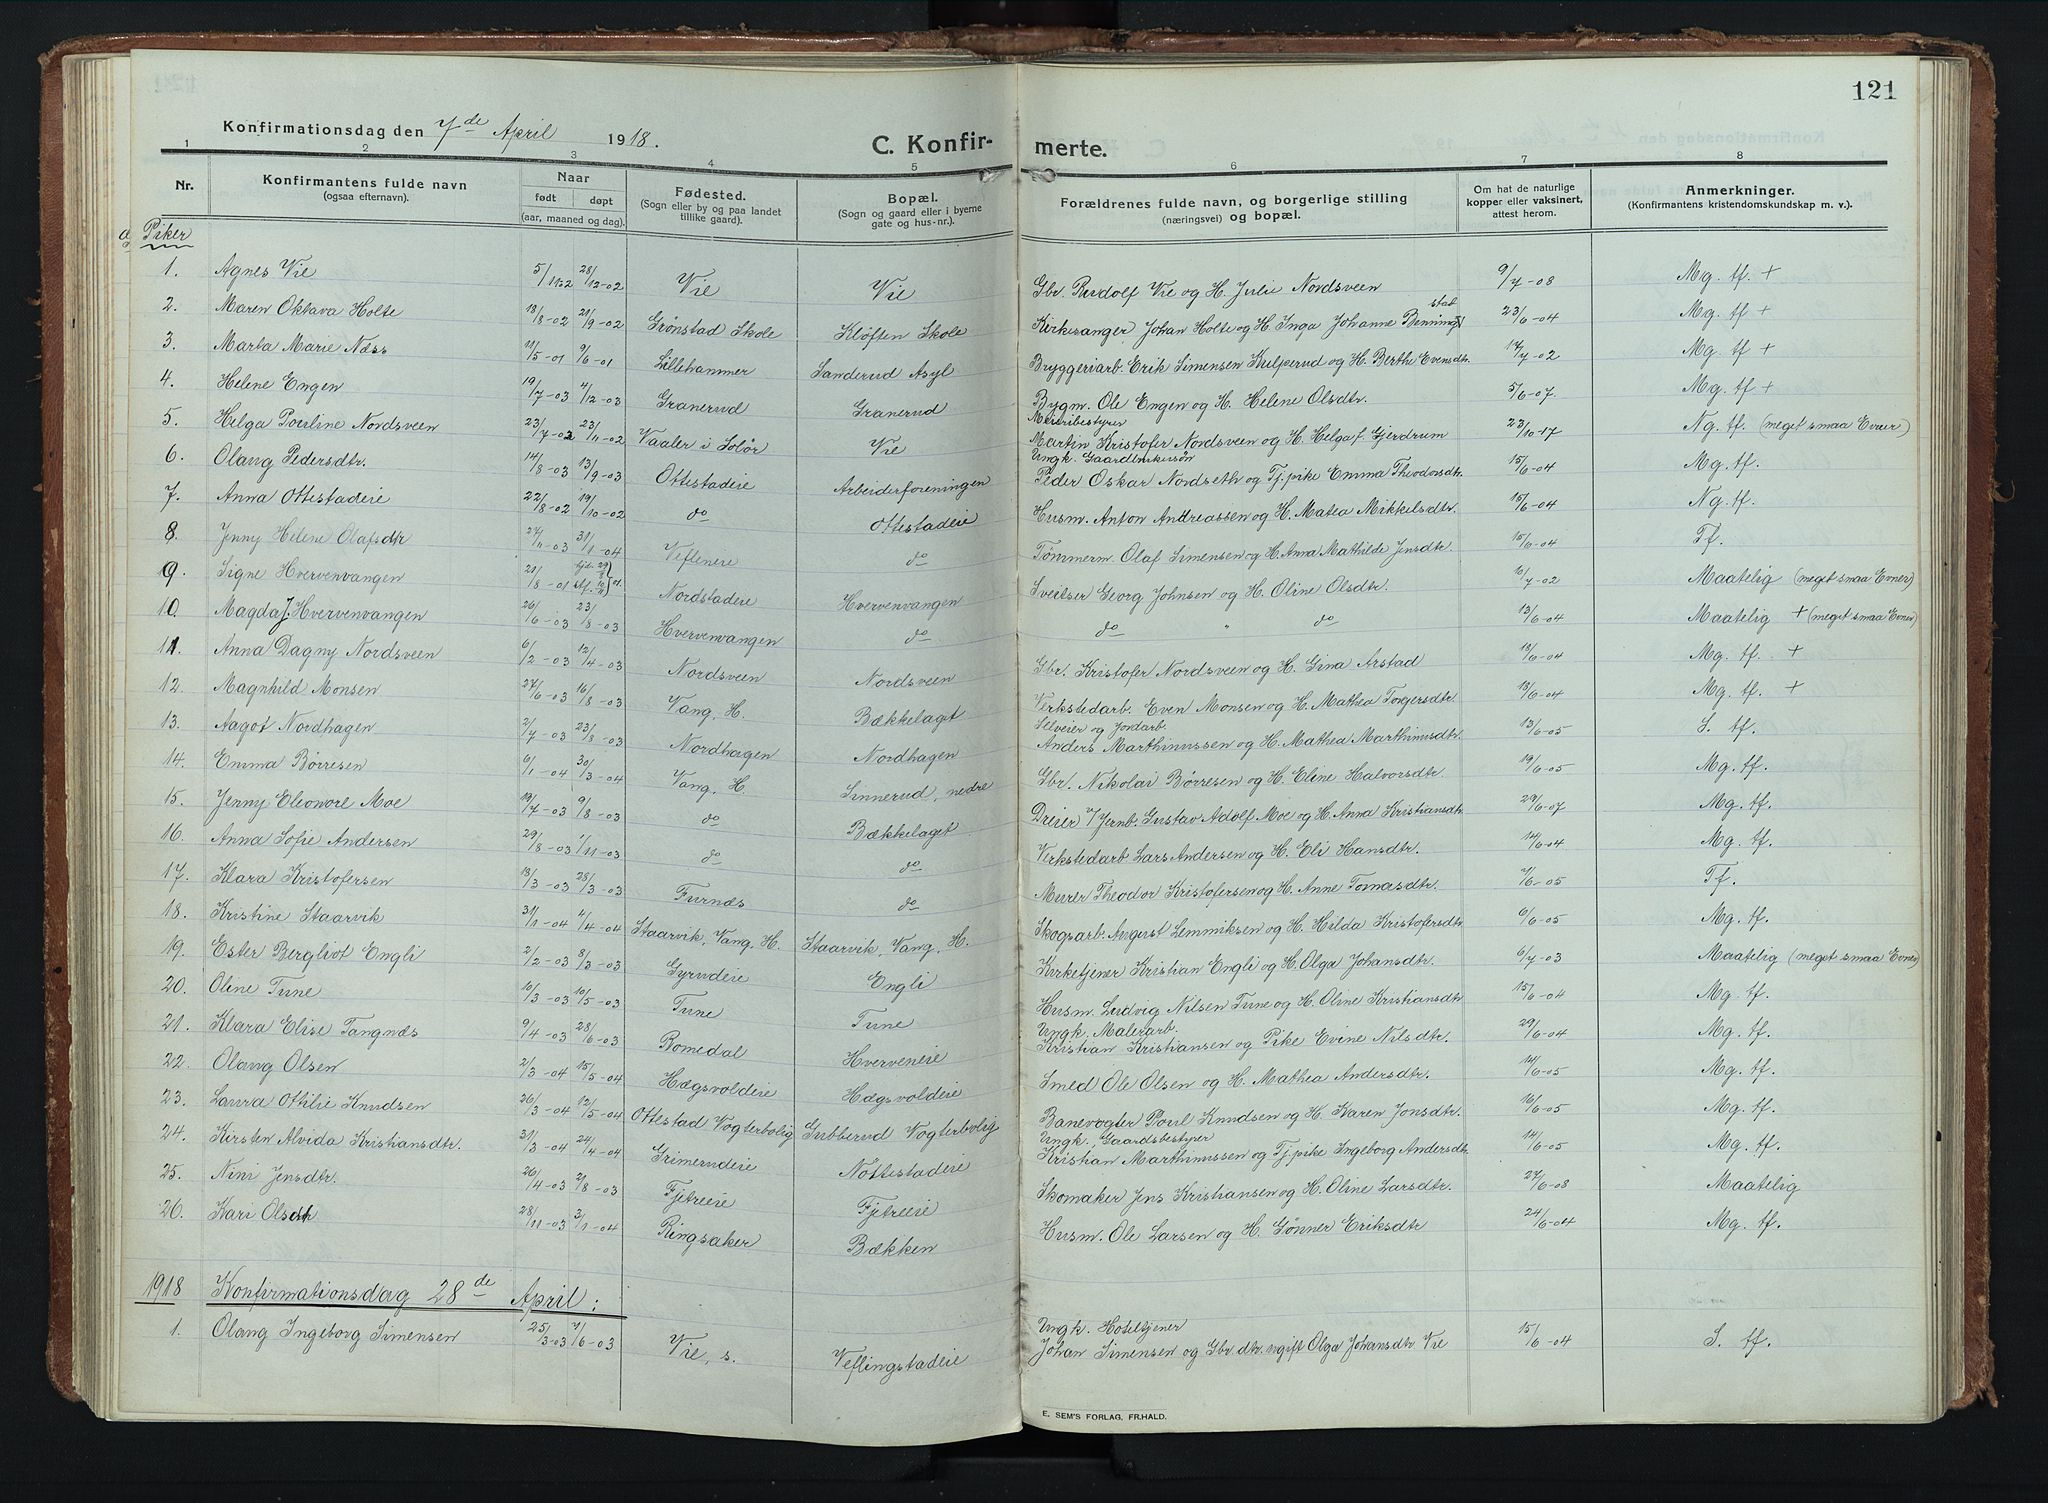 121
Konfirmationsdag den 7de April 1918.
C. Konfir- merte.
1 2 3 4 5 6 7 8
Nr. Konfirmantens fulde navn (ogsaa efternavn). Naar født døpt (aar, maaned og dag). Fødested. (Sogn eller by og paa landet tillike gaard). Bopæl. (Sogn og gaard eller i byerne gate og hus-nr.). Forældrenes fulde navn, og borgerlige stilling (næringsvei) og bopæl. Om hat de naturlige kopper eller vaksinert, attest herom. Anmerkninger. (Konfirmantens kristendomskundskap m. v.).
Piker
1. Agnes Vie 5/11 02 28/12-02 Vie Vie Gbr. Rudolf Vie og H. Julie Nordsveen 9/7-08 Mg. tf. +
2. Maren Oktava Holte 18/8-02 21/9-02 Grønstad Skole Kløften Skole Kirkesanger Johan Holte og H. Inga Johanne Benningstad 23/6-04 Mg. tf +
3. Marta Marie Næss 11/5-01 9/6-01 Lillehammer Sanderud Asyl Bryggeriarb. Erik Simensen Kulperud og H. Berthe Evensdtr. 17/7-02 Mg. tf +
4. Helene Engen 19/7-03 4/12-03 Granerud Granerud Bygm. Ole Engen og H. Helene Olsdtr. 5/6-07. Mg. tf +
5. Helga Pouline Nordsveen 23/7-02 23/11-02 Vaaler i Solør Vie Meieribestyrer Martin Kristofer Nordsveen og H. Helga f. Gjerdrum 23/10-17 Ng. tf. (meget smaa Evner)
6. Olaug Pedersdtr. 14/8-03 13/9-03 Ottestadeie Arbeiderforeningen Ungk. Gaardbrukersøn Peder Oskar Nordseth og Tj.pike Emma Theodorsdtr. 15/6-04 Mg. tf.
7. Anna Ottestadeie 22/8-02 19/10-02 do Ottestadeie Husm. Anton Andreassen og H. Matea Mikkelsdtr. 15/6-04 Ng. tf.
8. Jenny Helene Olafsdtr 27/11-03 31/1-04 Vefleneie do Tømmerm. Olaf Simensen og H. Anna Mathilde Jensdtr. 15/6-04 Tf.
9. Signe Hvervenvangen 21/8-01 Nordstadeie Hvervenvangen Sveitser Georg Johnsen og H. Oline Olsdtr. 10/7-02 Maatelig (meget smaa Evner)
10. Magda J. Hvervenvangen 26/6-03 23/8-03 Hvervenvangen do do " do 13/6-04 Maatelig + (meget smaa Evner)
11. Anna Dagny Nordsveen 6/2-03 12/4-03 Nordsveen Nordsveen Gbr. Kristofer Nordsveen og H. Gina Arstad 13/6-04 Mg. tf. +
12. Magnhild Monsen 27/6-03 16/8-03 Vang, H. Bækkelaget Verkstedarb. Even Monsen og H. Mathea Torgersdtr. 13/6-04 Mg. tf. +
13. Aagot Nordhagen 2/7-03 23/8-03 Nordhagen Nordhagen Selveier og Jordarb. Anders Marthinussen og H. Mathea Marthinusdtr. 13/6-05 S. tf.
14. Emma Børresen 6/1-04 30/3-04 Vang, H. Sinnerud, nedre Gbr. Nikolai Børresen og H. Eline Halvorsdtr. 19/6-05 Mg. tf.
15. Jenny Eleonore Moe 19/7-03 9/8-03 do Bækkelaget Dreier v/Jernb. Gustav Adolf Moe og H. Anna Kristiansdtr. 29/6-07 Mg. tf.
16. Anna Sofie Andersen 29/8-03 1/11-03 do do Verkstedarb Lars Andersen og H. Eli Hansdtr. 14/6-04 Mg. tf.
17. Klara Kristofersen 13/3-03 28/3-03 Furnæs do Murer Theodor Kristofersen og H. Anne Tomasdtr. 7/6-05 Tf.
18. Kristine Staarvik 31/1-04 4/4-04 Staarvik, Vang, H. Staarvik, Vang, H. Skogsarb. August Lemmiksen og H. Hilda Kristofersdtr 6/6-05 Mg. tf.
19. Ester Bergliot Engli 2/2-03 8/3-03 Gyrudeie Engli Kirketjener Kristian Engli og H. Olga Johansdtr. 6/7-03 Maatelig (meget smaa Evner)
20. Oline Tune 10/3-03 10/5-03 Tune Tune Husm. Ludvig Nilsen Tune og H. Oline Kristiansdtr 15/6-04 Mg. tf.
21. Klara Elise Tangnæs 9/4-03 28/6-03 Bomedal Hverveneie Ungk. Malerarb. Kristian Kristiansen og Pike Evine Nilsdtr. 29/6-04 Mg. tf.
22. Olaug Olsen 2/3-04 15/5-04 Hægsvoldeie Hægsvoldeie Smed Ole Olsen og H. Mathea Andersdtr. 14/6-05 Mg. tf.
23. Laura Ottilie Knudsen 26/3-04 12/5-04 Ottestad Vogterbolig Gubberud Vogterbolig Banevogter Poul Knudsen og H. Karen Jonsdtr. 16/6-05 Mg. tf.
24. Kirsten Alvida Kristiansdtr. 31/3-04 24/4-04 Grimerudeie Nottestadeie Ungk. Gaardsbestyrer Kristian Marthinussen og Tj.pike Ingeborg Andersdtr 14/6-05 Mg. tf.
25. Nini Jensdtr. 26/4-03 2/8-03 Fjetreeie Fjetreeie Skomaker Jens Kristiansen og H. Oline Larsdtr. 27/6-08 Maatelig
26. Kari Olsdtr 28/11-03 3/1-04 Ringsaker Bækken Husm. Ole Larsen og H. Gønner Eriksdtr 24/6-04 Mg. tf.
1918 Konfirmationsdag 28de April:
1. Olaug Ingeborg Simensen 25/3-03 7/6-03 Vie, s. Veflingstadeie Ungk. Hoteltjener Johan Simensen og Gbr.dtr. ugift Olga Johansdtr Vie 15/6-04 S. tf.
E. SEM'S FORLAG, FR.HALD.